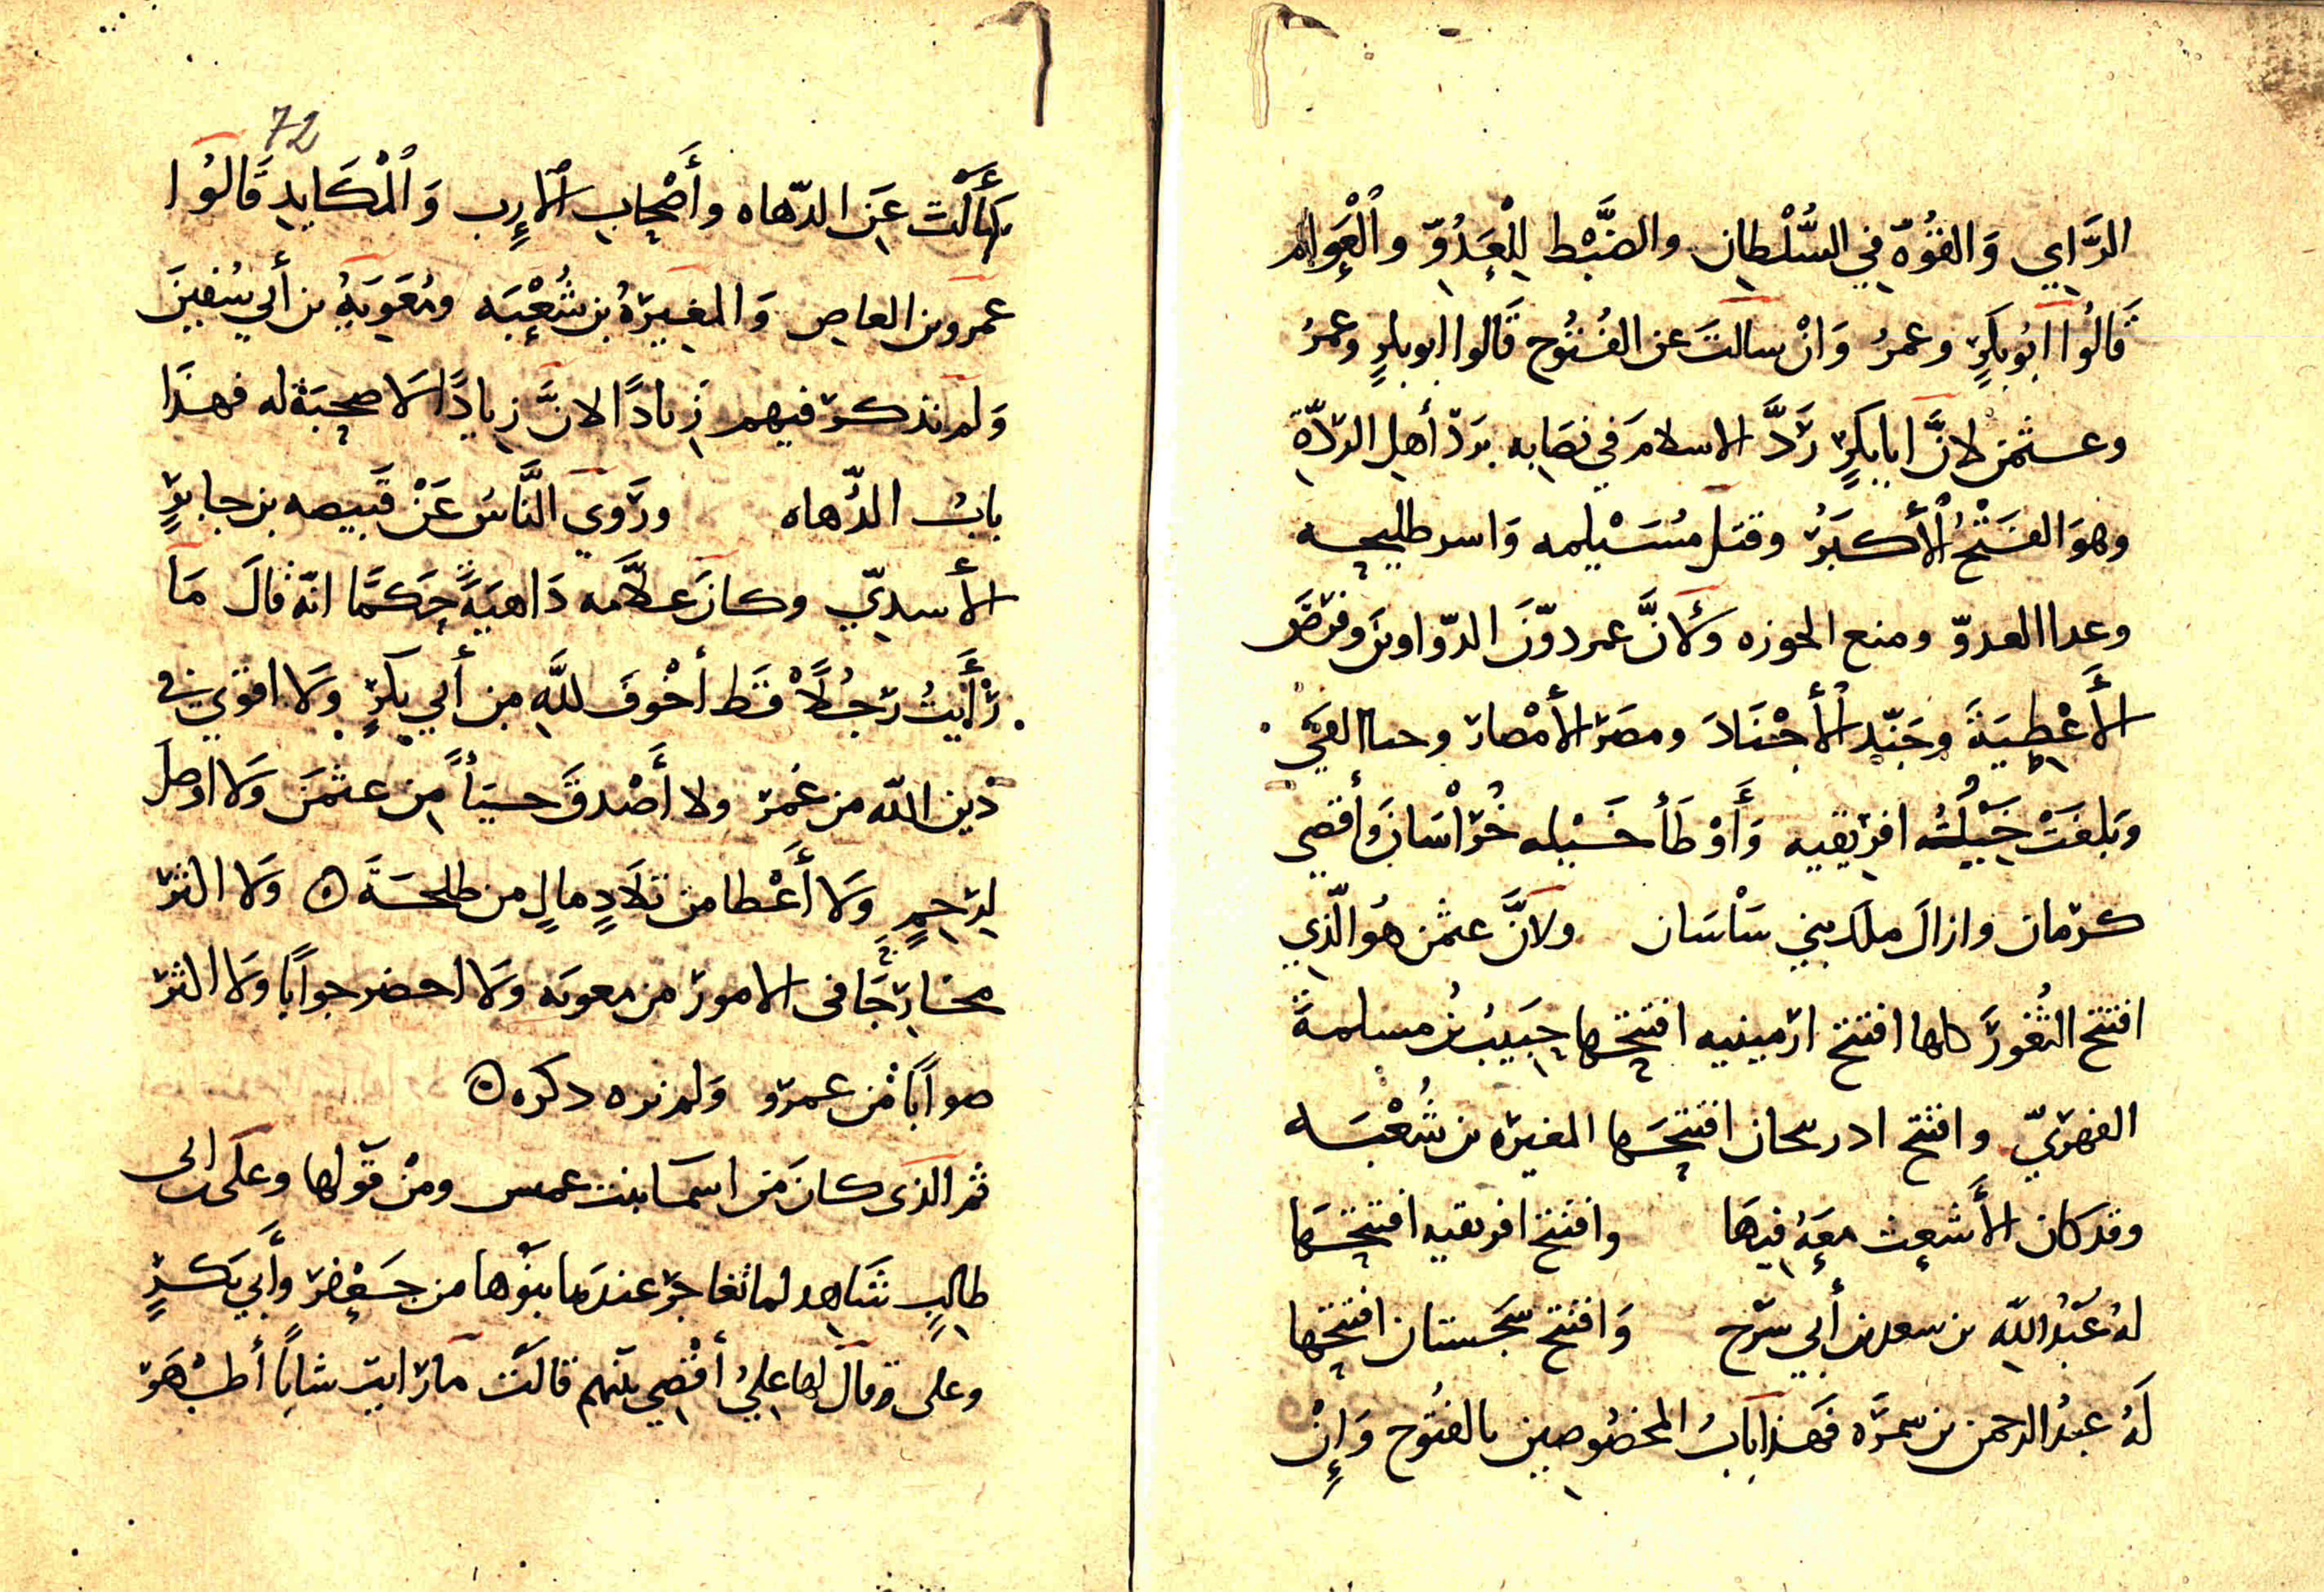 الرَّايِ وَالقُوّة فِي السُّلْطانِ والضَّبْط لِلْعَدُوّ والْعَوام
قَالُوا ابُو بكرٍ وعمرُ وَانْ سالتَ عن الفُتُوح قَالوا ابو بكرٍ وعمرُ
وعثمن لانَّ ابا بكرٍ رَدَّ الاسلامَ في نصَابه بردّ أهل الردّة
وهوَ الفَتْحُ الأكبَرُ وقتل مُسَيْلِمه وَاسر طليحه
وعدا العدوّ ومنع الحوزه وَلأنَّ عمر دوّنَ الدّواوينَ وفرَضَ
الأَعْطِيَةَ وجَنّد الأجْنَادَ ومصّرَ الأمْصارَ وحبا الفَيَ
وَبلغَتْ خَيْلُهُ افريقيه وَأَوْطَأ خَيْله خُرَاْسَانَ وأقصي
كرمان وازالَ ملكَ بني سَاْسَان ولانَّ عثمن هُو الّذي
افتتح الثُغورَ كلها افتتح ارمينيه افتتحها حَبيبُ بن مسلمةَ
الفهريّ وافتتح ادربيجان افتتحَها المغيره بن شُعْبَه
وقد كان الأَشعث معَهُ فيهَا وافتتح افريقيه افتتحَها
لهُ عَبْدُ اللّهِ بن سعد بن أبي سَرْح وَافتتح سجَستان افتتحها
لَهُ عبدُ الرحمن بن سَمُرَه فهَذا بَابُ المخصُوصين بالفتُوح وَإنْ
72
سَأَلْتَ عَنِ الدّهاه وأَصْحابِ الارِب وَالْمكَايِدِ قَالُوا
عَمرو بن العاصِ وَالمغيرَةُ بن شُعْبَه ومُعَويَةُ بن أبي سُفينَ
وَلم نذكر فيهم زيادًا لانَّ زيادًا لاَ صحبَة له فهذَا
بابُ الدُّهاه ورَوي النَّاسُ عَنْ قَبيصه بن جابرٍ
الأسديّ وكانَ علاّمه دَاهيَةً حَكَمًا انّه قالَ مَا
رَأَيتُ رَجُلاً قَط أخْوفَ للَّهِ مِن أبي بكرٍ وَلا اقوَي في
دين اللّه من عُمَر ولا أَصْدقَ حيَاً مِن عثمَنَ وَلا اوصلَ
لرَحِمٍ وَلا أَعْطا من تلاَدِ مالٍ من طلحَةَ ۞ وَلا اكثرَ
مخارجًا في الامورَ من معويَه وَلا احضر جوابًا وَلا اكثرَ
صوابًا من عمرَو وَلم نره دكره ۞
ثم الذى كانَ مَن اسمَا بنت عميس ومن قوَلها وعَلى بن ابى
طالبٍ شَاهد لما تفاخرَ عندَها بنَوُها من جَعْفرَ وأَبي بَكرٍ
وعلى وقالَ لها عليُ أقضي بينَهم قالَت مَا رَايت شابًا أطهَرَ